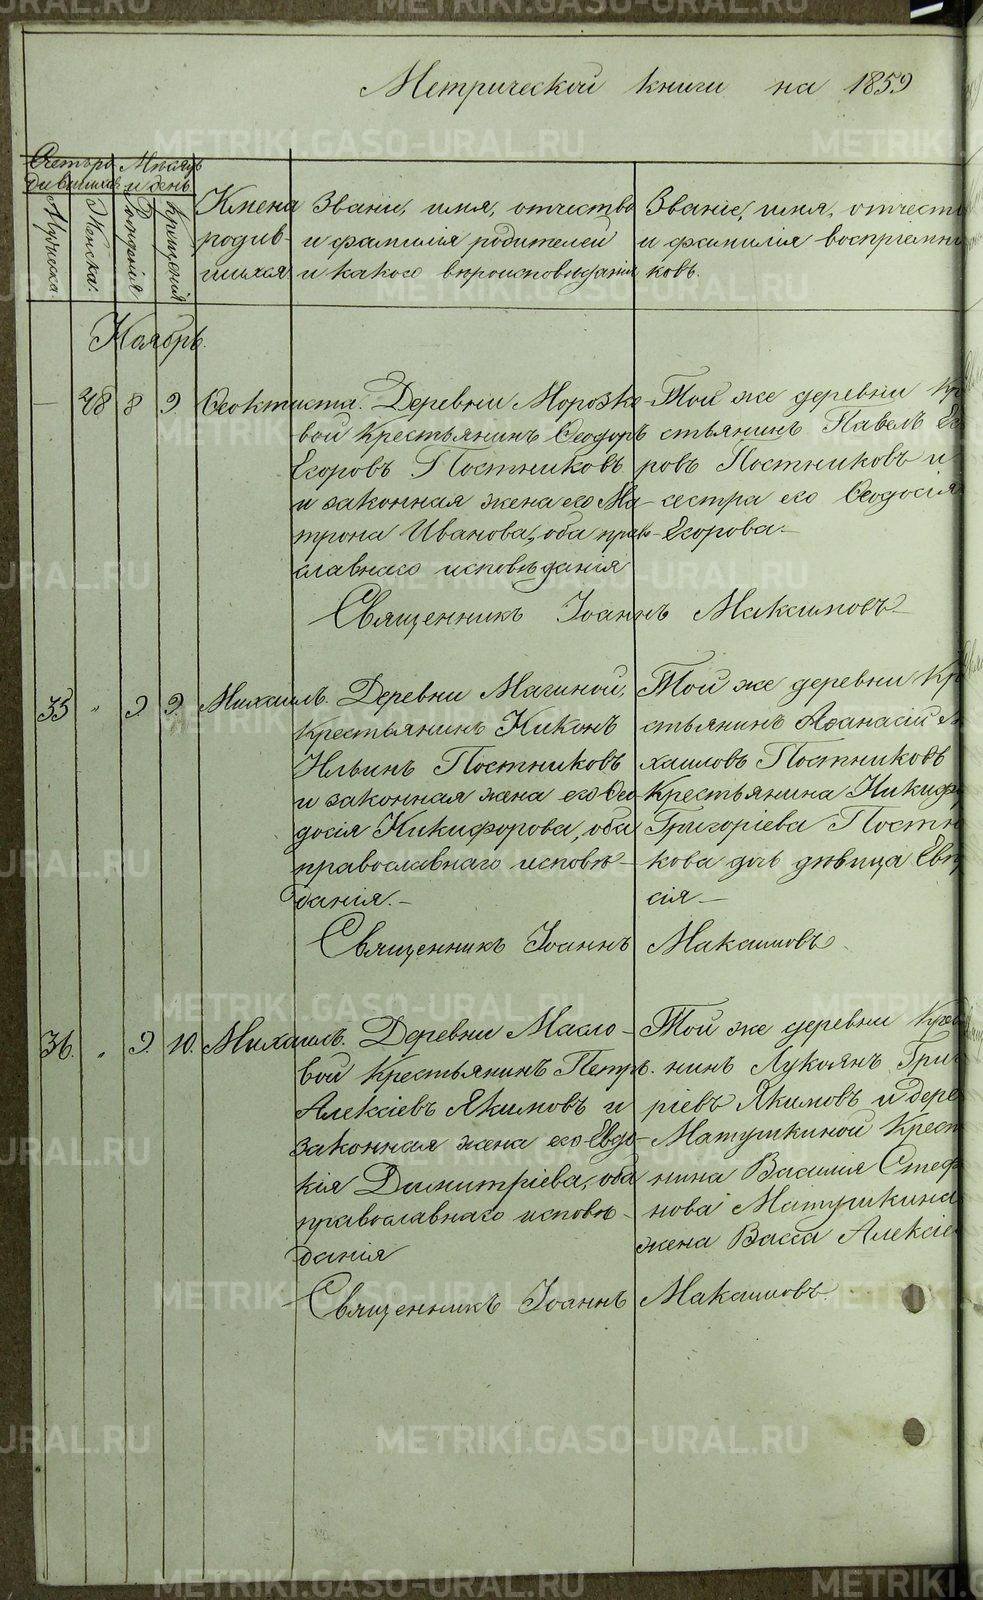 Метрической книги на 1859
Счетъ ро-
дившихся
Мѣсяцъ
и день
Мужеска.
Женска.
Рожденія
Крещенія
Имена
родив-
шихся
Званіе, имя, отчество
и фамилія родителей
и какого вѣроисповѣданія
Званіе, имя, отчест
и фамилія воспріемни
ковъ.
Ноябрь.
— 48 8 9 Ѳеоктиста. Деревни Морозко-
вой Крестьянинъ Ѳеодоръ
Егоровъ Постниковъ
и законная жена его Ма-
трона Иванова, оба право-
славнаго исповѣданія
Той же деревни Кре
стьянинъ Павелъ Ег
ровъ Постниковъ и
сестра его Ѳеодосія
Егорова.—
Священникъ Іоаннъ Максимовъ
35 " 9 9. Михаилъ. Деревни Мачиной,
Крестьянинъ Никонъ
Ильинъ Постниковъ
и законная жена его Ѳео-
досія Никифорова, оба
православнаго исповѣ-
данія.—
Той же деревни Кр
стьянинъ Аѳанасій М
хаиловъ Постниковъ
Крестьянина Никиф
Григоріева Постн
кова дочь дѣвица Евп
сія—
Священникъ Іоаннъ Максимовъ
36. " 9. 10. Михаилъ. Деревни Масло-
вой Крестьянинъ Петръ
Алексіевъ Якимовъ и
законная жена его Евдо-
кія Димитріева, оба
православнаго исповѣ-
данія
Той же деревни Крес
нинъ Лукоянъ Григ
ріевъ Якимовъ и дере
Матушкиной Крест
нина Василія Стеф
нова Матушкина
жена Васса Алексіе
Священникъ Іоаннъ Максимовъ.